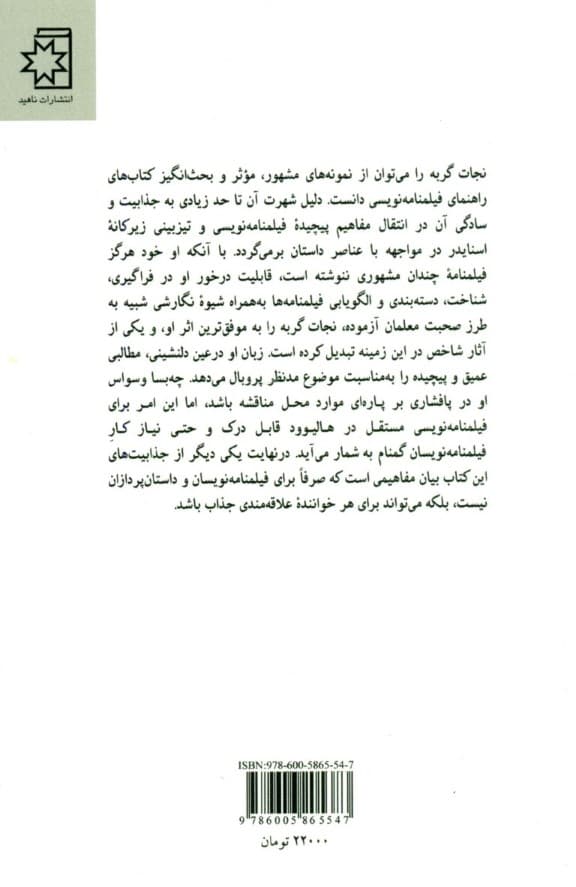 انتشارات ناهید
نجات گربه را می‌توان از نمونه‌های مشهور، مؤثر و بحث‌انگیز کتاب‌های
راهنمای فیلمنامه‌نویسی دانست. دلیل شهرت آن تا حد زیادی به جذابیت و
سادگی آن در انتقال مفاهیم پیچیدهٔ فیلمنامه‌نویسی و تیزبینی زیرکانهٔ
اسنایدر در مواجهه با عناصر داستان برمی‌گردد. با آنکه او خود هرگز
فیلمنامهٔ چندان مشهوری ننوشته است، قابلیت درخور او در فراگیری،
شناخت، دسته‌بندی و الگویابی فیلمنامه‌ها به‌همراه شیوهٔ نگارشی شبیه به
طرز صحبت معلمان آزموده، نجات گربه را به موفق‌ترین اثر او، و یکی از
آثار شاخص در این زمینه تبدیل کرده است. زبان او درعین دلنشینی، مطالبی
عمیق و پیچیده را به‌مناسبت موضوع مدنظر پروبال می‌دهد. چه‌بسا وسواس
او در پافشاری بر پاره‌ای موارد محل مناقشه باشد، اما این امر برای
فیلمنامه‌نویسی مستقل در هالیوود قابل درک و حتی نیاز کارِ
فیلمنامه‌نویسان گمنام به شمار می‌آید. درنهایت یکی دیگر از جذابیت‌های
این کتاب بیان مفاهیمی است که صرفاً برای فیلمنامه‌نویسان و داستان‌پردازان
نیست، بلکه می‌تواند برای هر خوانندهٔ علاقه‌مندی جذاب باشد.
ISBN:978-600-5865-54-7
9 786005 865547
۲۲۰۰۰ تومان